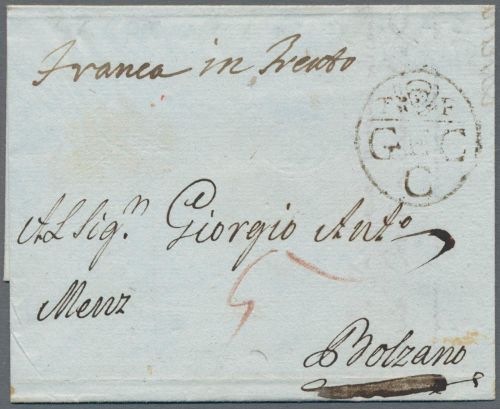 Franca in Trento
G E C
C
Al Sig.n Giorgio Anto
Menz
5
Bolzano